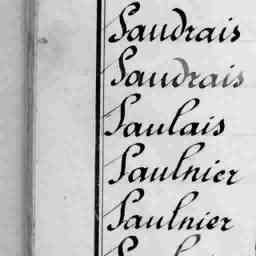 Saudrais
Saudrais
Saulais
Saulnier
Saulnier